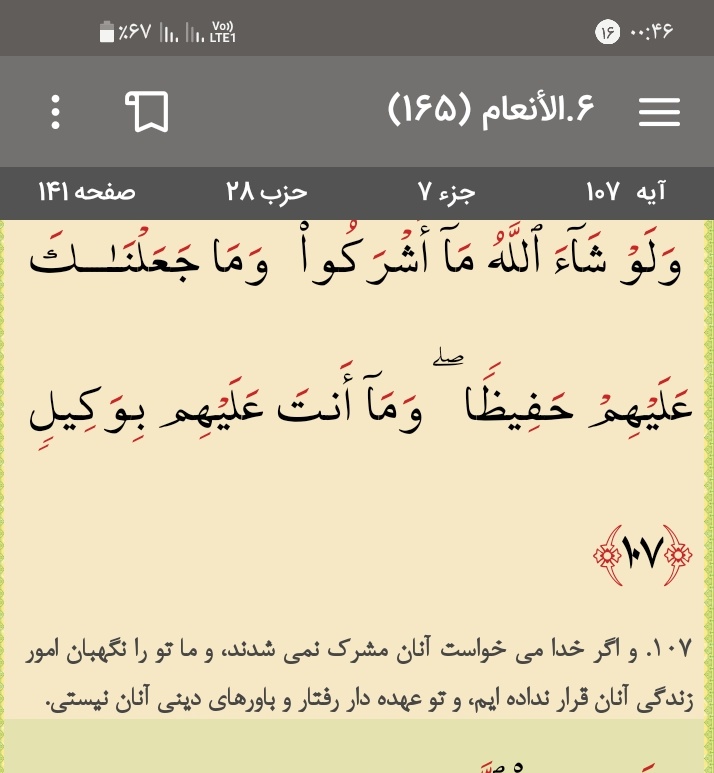 ۰۰:۴۶ ۱۶ Vo)) LTE1 ٪۶۷
۶.الأنعام (۱۶۵)
آیه ۱۰۷ جزء ۷ حزب ۲۸ صفحه ۱۴۱
وَلَوْ شَآءَ ٱللَّهُ مَآ أَشْرَكُوا۟ وَمَا جَعَلْنَـٰكَ
عَلَيْهِمْ حَفِيظًا ۖ وَمَآ أَنتَ عَلَيْهِم بِوَكِيلٍ
﴿۱۰۷﴾
۱۰۷. و اگر خدا می خواست آنان مشرک نمی شدند، و ما تو را نگهبان امور
زندگی آنان قرار نداده ایم، و تو عهده دار رفتار و باورهای دینی آنان نیستی.